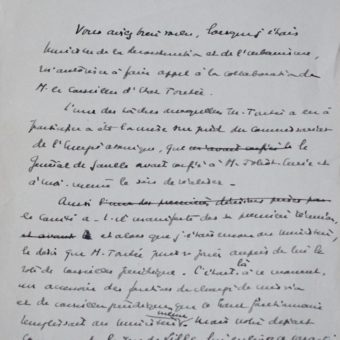 Vous aviez bien voulu, lorsque j'étais
Ministre de la Reconstruction et de l'Urbanisme,
m'autoriser à faire appel à la collaboration de
M. le Conseiller d'Etat Toutée.
L'une des tâches auxquelles M. Toutée a eu à
participer a été la mise sur pied du Commissariat
de l'Energie atomique, que le
Général de Gaulle avait confié à M. Joliot-Curie et
à moi-même le soin de réaliser.
Aussi l'une des premières
le Comité a-t-il manifesté dès sa première réunion,
et avant et alors que j'étais encore au ministère,
le désir que M. Toutée puisse jouer auprès de lui le
rôle de conseiller juridique. C'était là à ce moment,
un accessoire des fonctions de chargé de mission
et de conseiller juridique que ce haut fonctionnaire
remplissait au ministère même. Mais votre départ